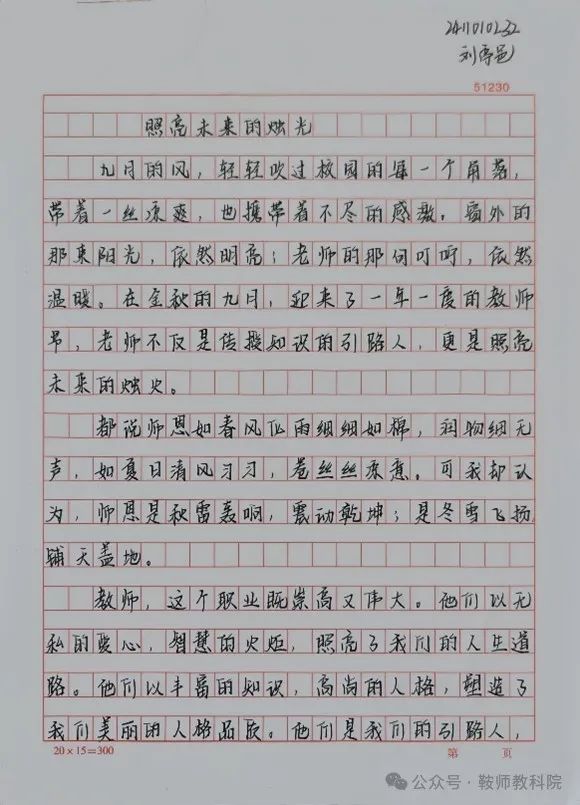 2411010232
刘雨邑
51230
照亮未来的烛光
九月的风，轻轻吹过校园的每一个角落，
带着一丝凉爽，也携带着不尽的感激。窗外的
那束阳光，依然明亮；老师的那句叮咛，依然
温暖。在金秋的九月，迎来了一年一度的教师
节，老师不仅是传授知识的引路人，更是照亮
未来的烛火。
都说师恩如春风化雨细细如棉，润物细无
声，如夏日清风习习，卷丝丝凉意。可我却认
为，师恩是秋雷轰响，震动乾坤；是冬雪飞扬
铺天盖地。
教师，这个职业既崇高又伟大。他们以无
私的爱心，智慧的火炬，照亮了我们的人生道
路。他们以丰富的知识，高尚的人格，塑造了
我们美丽的人格品质。他们是我们的引路人，
20×15=300
第 页
公众号·鞍师教科院